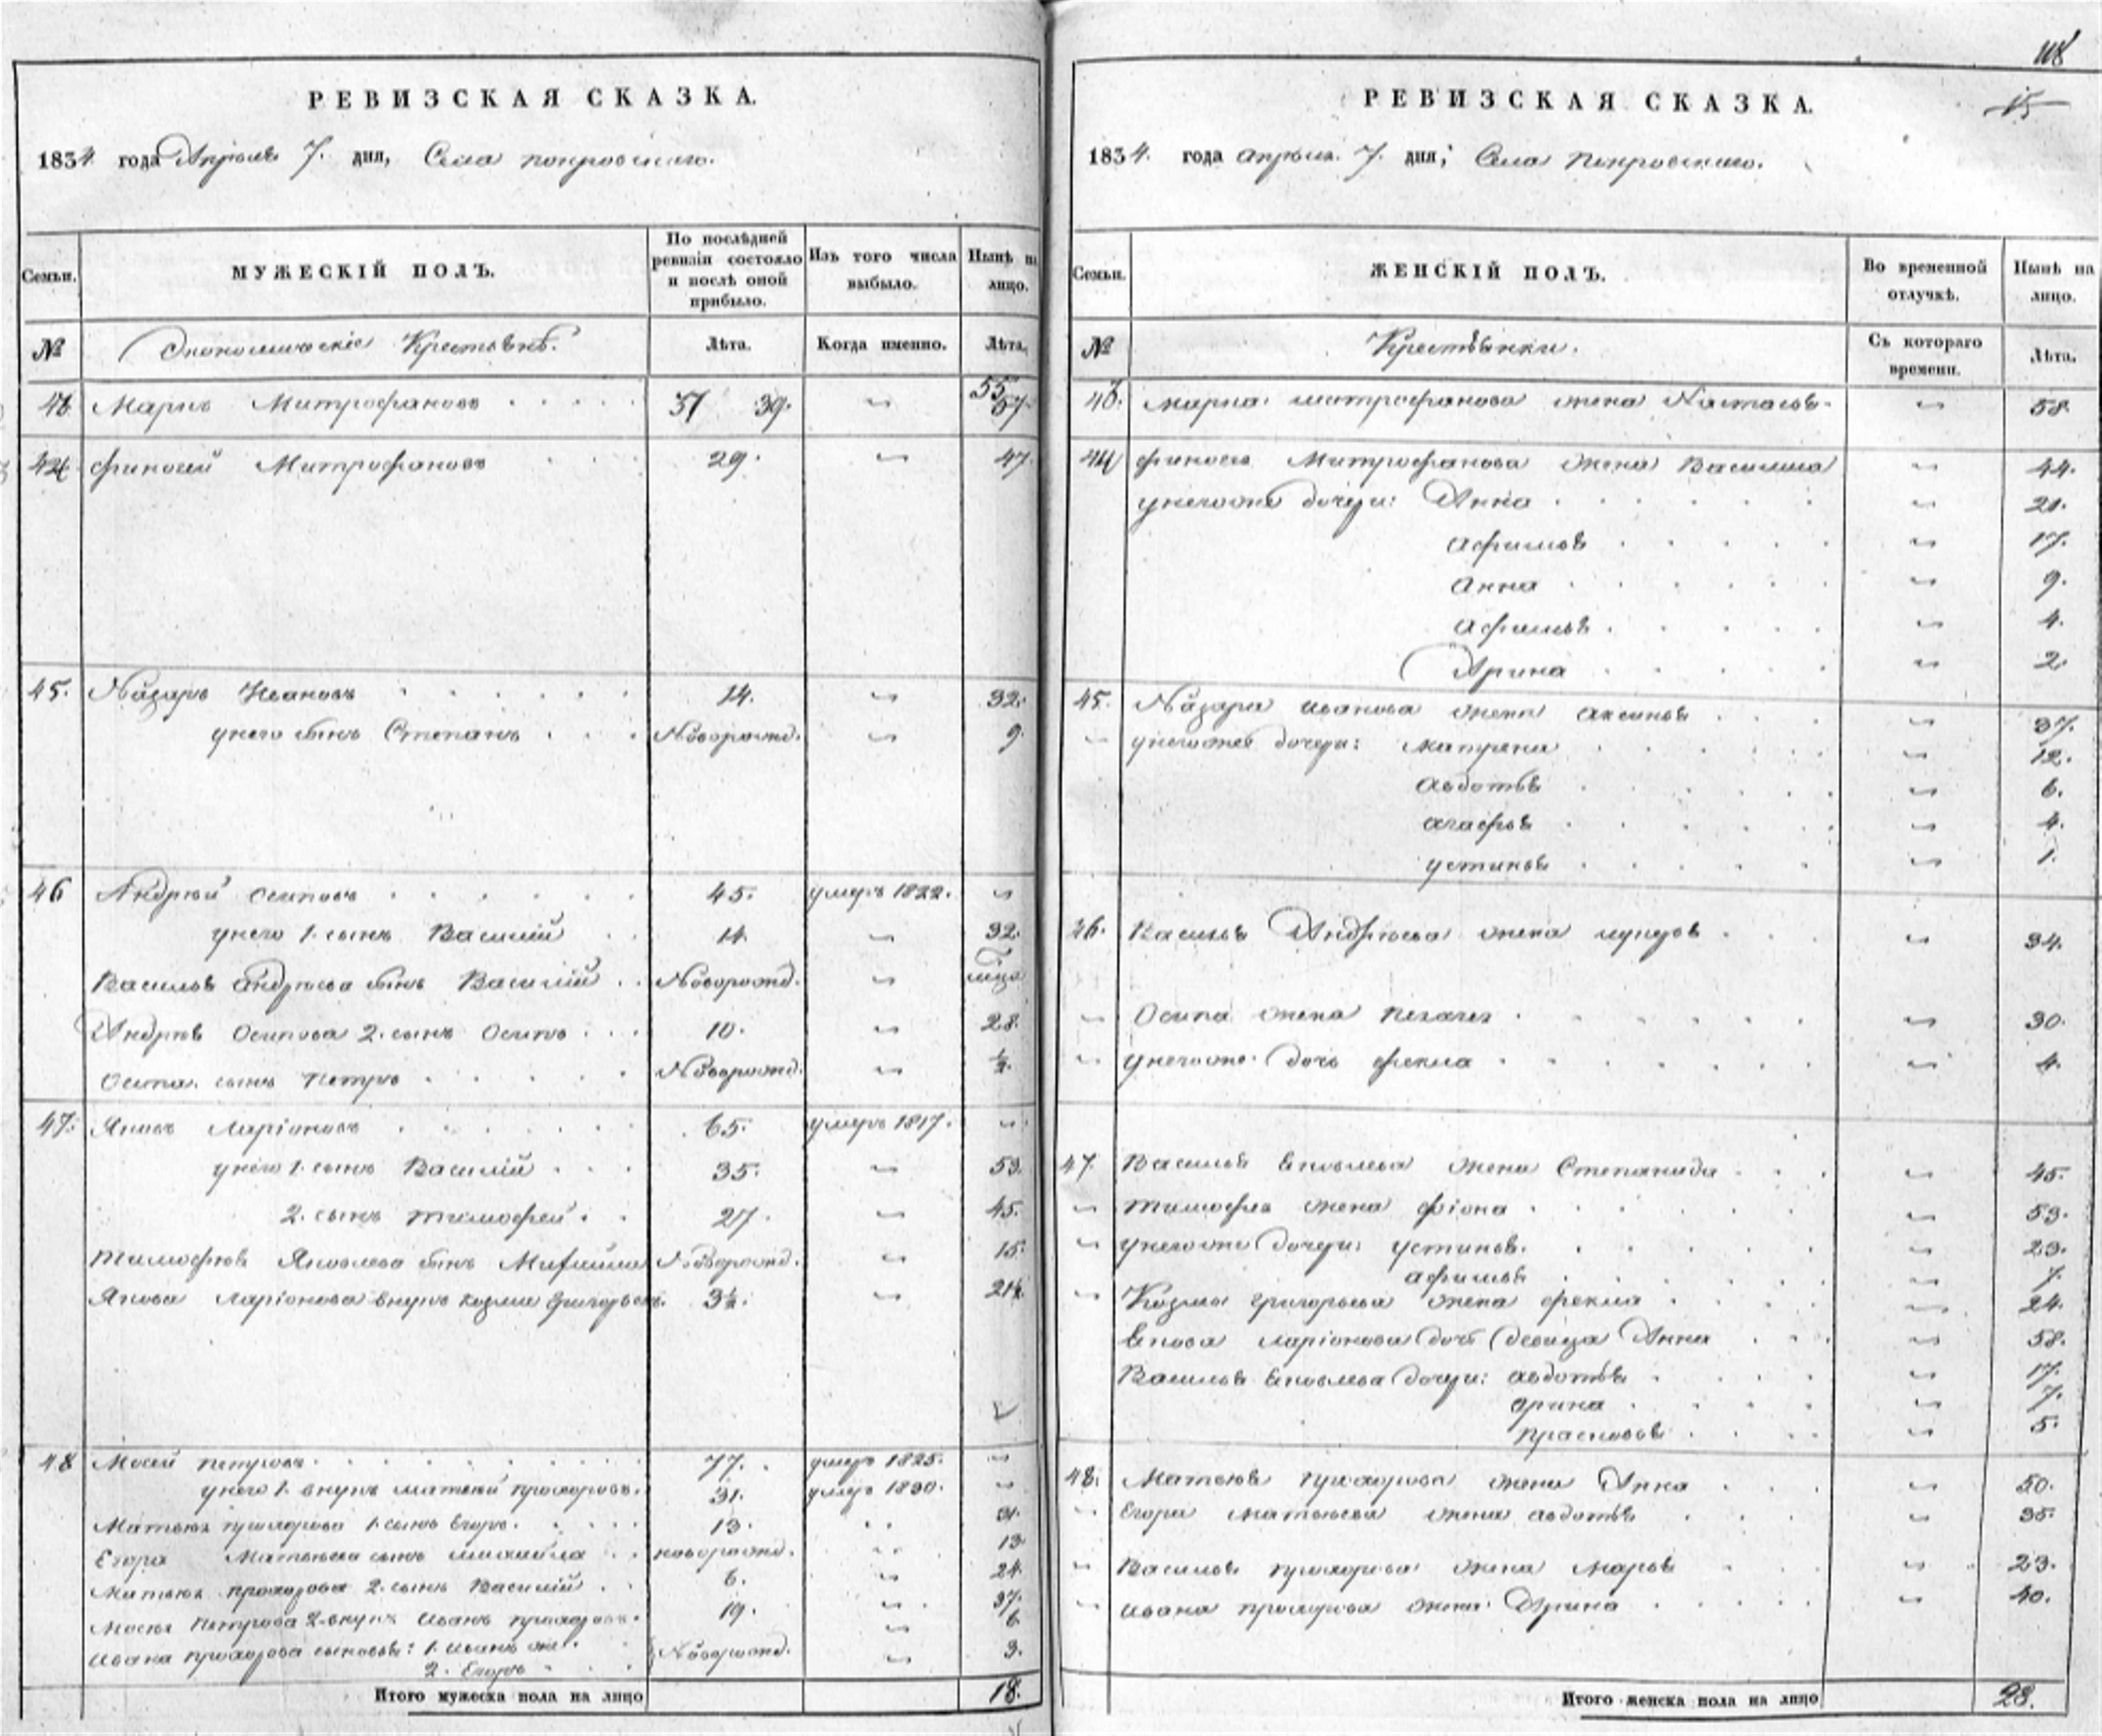 РЕВИЗСКАЯ СКАЗКА.
1834. года Апреля 7. дня, Села покровскаго.
Семьи.
МУЖЕСКІЙ ПОЛЪ.
По послѣдней ревизіи состояло и послѣ оной прибыло.
Изъ того числа выбыло.
Нынѣ на лицо.
№ Экономическіе Крестьянѣ. Лѣта. Когда именно. Лѣта.
43 Маркъ Митрофановъ 39. 〃 57
44 финогей Митрофановъ 29. 〃 47
45. Назаръ Ивановъ 14. 〃 32.
унего сынъ Степанъ Новорожд. 〃 9
46 Андрей осиповъ 45. умеръ 1822. 〃
унего 1. сынъ Василій 14 〃 32.
Васильѣ андреева сынъ Василій Новорожд. 〃
Андреѣ осипова 2. сынъ осипъ 10. 〃 28.
осипа сынъ петръ Новорожд. 〃 ½
47. Яковъ ларіоновъ 65. умеръ 1817. 〃
унего 1. сынъ Василій 35. 〃 53.
2. сынъ тимофей 27. 〃 45.
тимофеѣ Яковлева сынъ Михайла Новорожд. 〃 15.
Якова ларіонова внукъ козма григорьевъ. 3½. 〃 21½
48 Мосей петровъ 77. умеръ 1825. 〃
унего 1. внукъ матвей прохоровъ. 31. умеръ 1830. 〃
Матвея прохорова 1. сынъ Егоръ. 13. 31.
Егора Матвеева сынъ михайла новорожд. 〃 13
матвея прохорова 2. сынъ Василій 6. 〃 24.
мосея петрова 2. внукъ иванъ прохоровъ. 19. 〃 37.
ивана прохорова сыновья: 1. иванъ Новорожд. 〃 6
2. Егоръ 〃 3.
Итого мужеска пола на лицо 18.
118
РЕВИЗСКАЯ СКАЗКА.
15
1834. года апреля. 7. дня, Села Покровскаго.
Семьи.
ЖЕНСКІЙ ПОЛЪ.
Во временной отлучкѣ.
Нынѣ на лицо.
№ Крестьянки. Съ котораго времени. Лѣта.
43. марка митрофанова жена Настасьѣ 〃 58
44 финогеѣ Митрофанова жена Василиса 〃 44.
унегоже дочери: Анна 〃 21.
афимьѣ 〃 17.
анна 〃 9.
афимьѣ 〃 4.
Арина 〃 2
45. Назара иванова жена аксиньѣ 〃 37.
〃 унегоже дочери: матрена 〃 12.
авдотьѣ 〃 6.
агафьѣ 〃 4.
устиньѣ 〃 1.
46. Васильѣ Андреева жена 〃 34.
〃 осипа жена пелагея 〃 30.
〃 унегоже дочь фекла 〃 4.
47. Васильѣ Яковлева жена Степанида 〃 45.
〃 тимофея жена фіона 〃 53.
〃 унегоже дочери: устиньѣ. 〃 23.
афимьѣ 〃 7.
〃 Козмы григорьева жена фекла 〃 24.
Якова ларіонова дочь девица Анна 〃 58.
Васильѣ Яковлева дочери: авдотьѣ 〃 17.
арина 〃 7.
прасковьѣ 〃 5.
48. Матвеѣ прохорова жена Анна 〃 50.
〃 Егора матвеева жена авдотьѣ 〃 35.
〃 Васильѣ прохорова жена марьѣ 〃 23.
〃 ивана прохорова жена Арина 〃 40.
Итого женска пола на лицо 28.